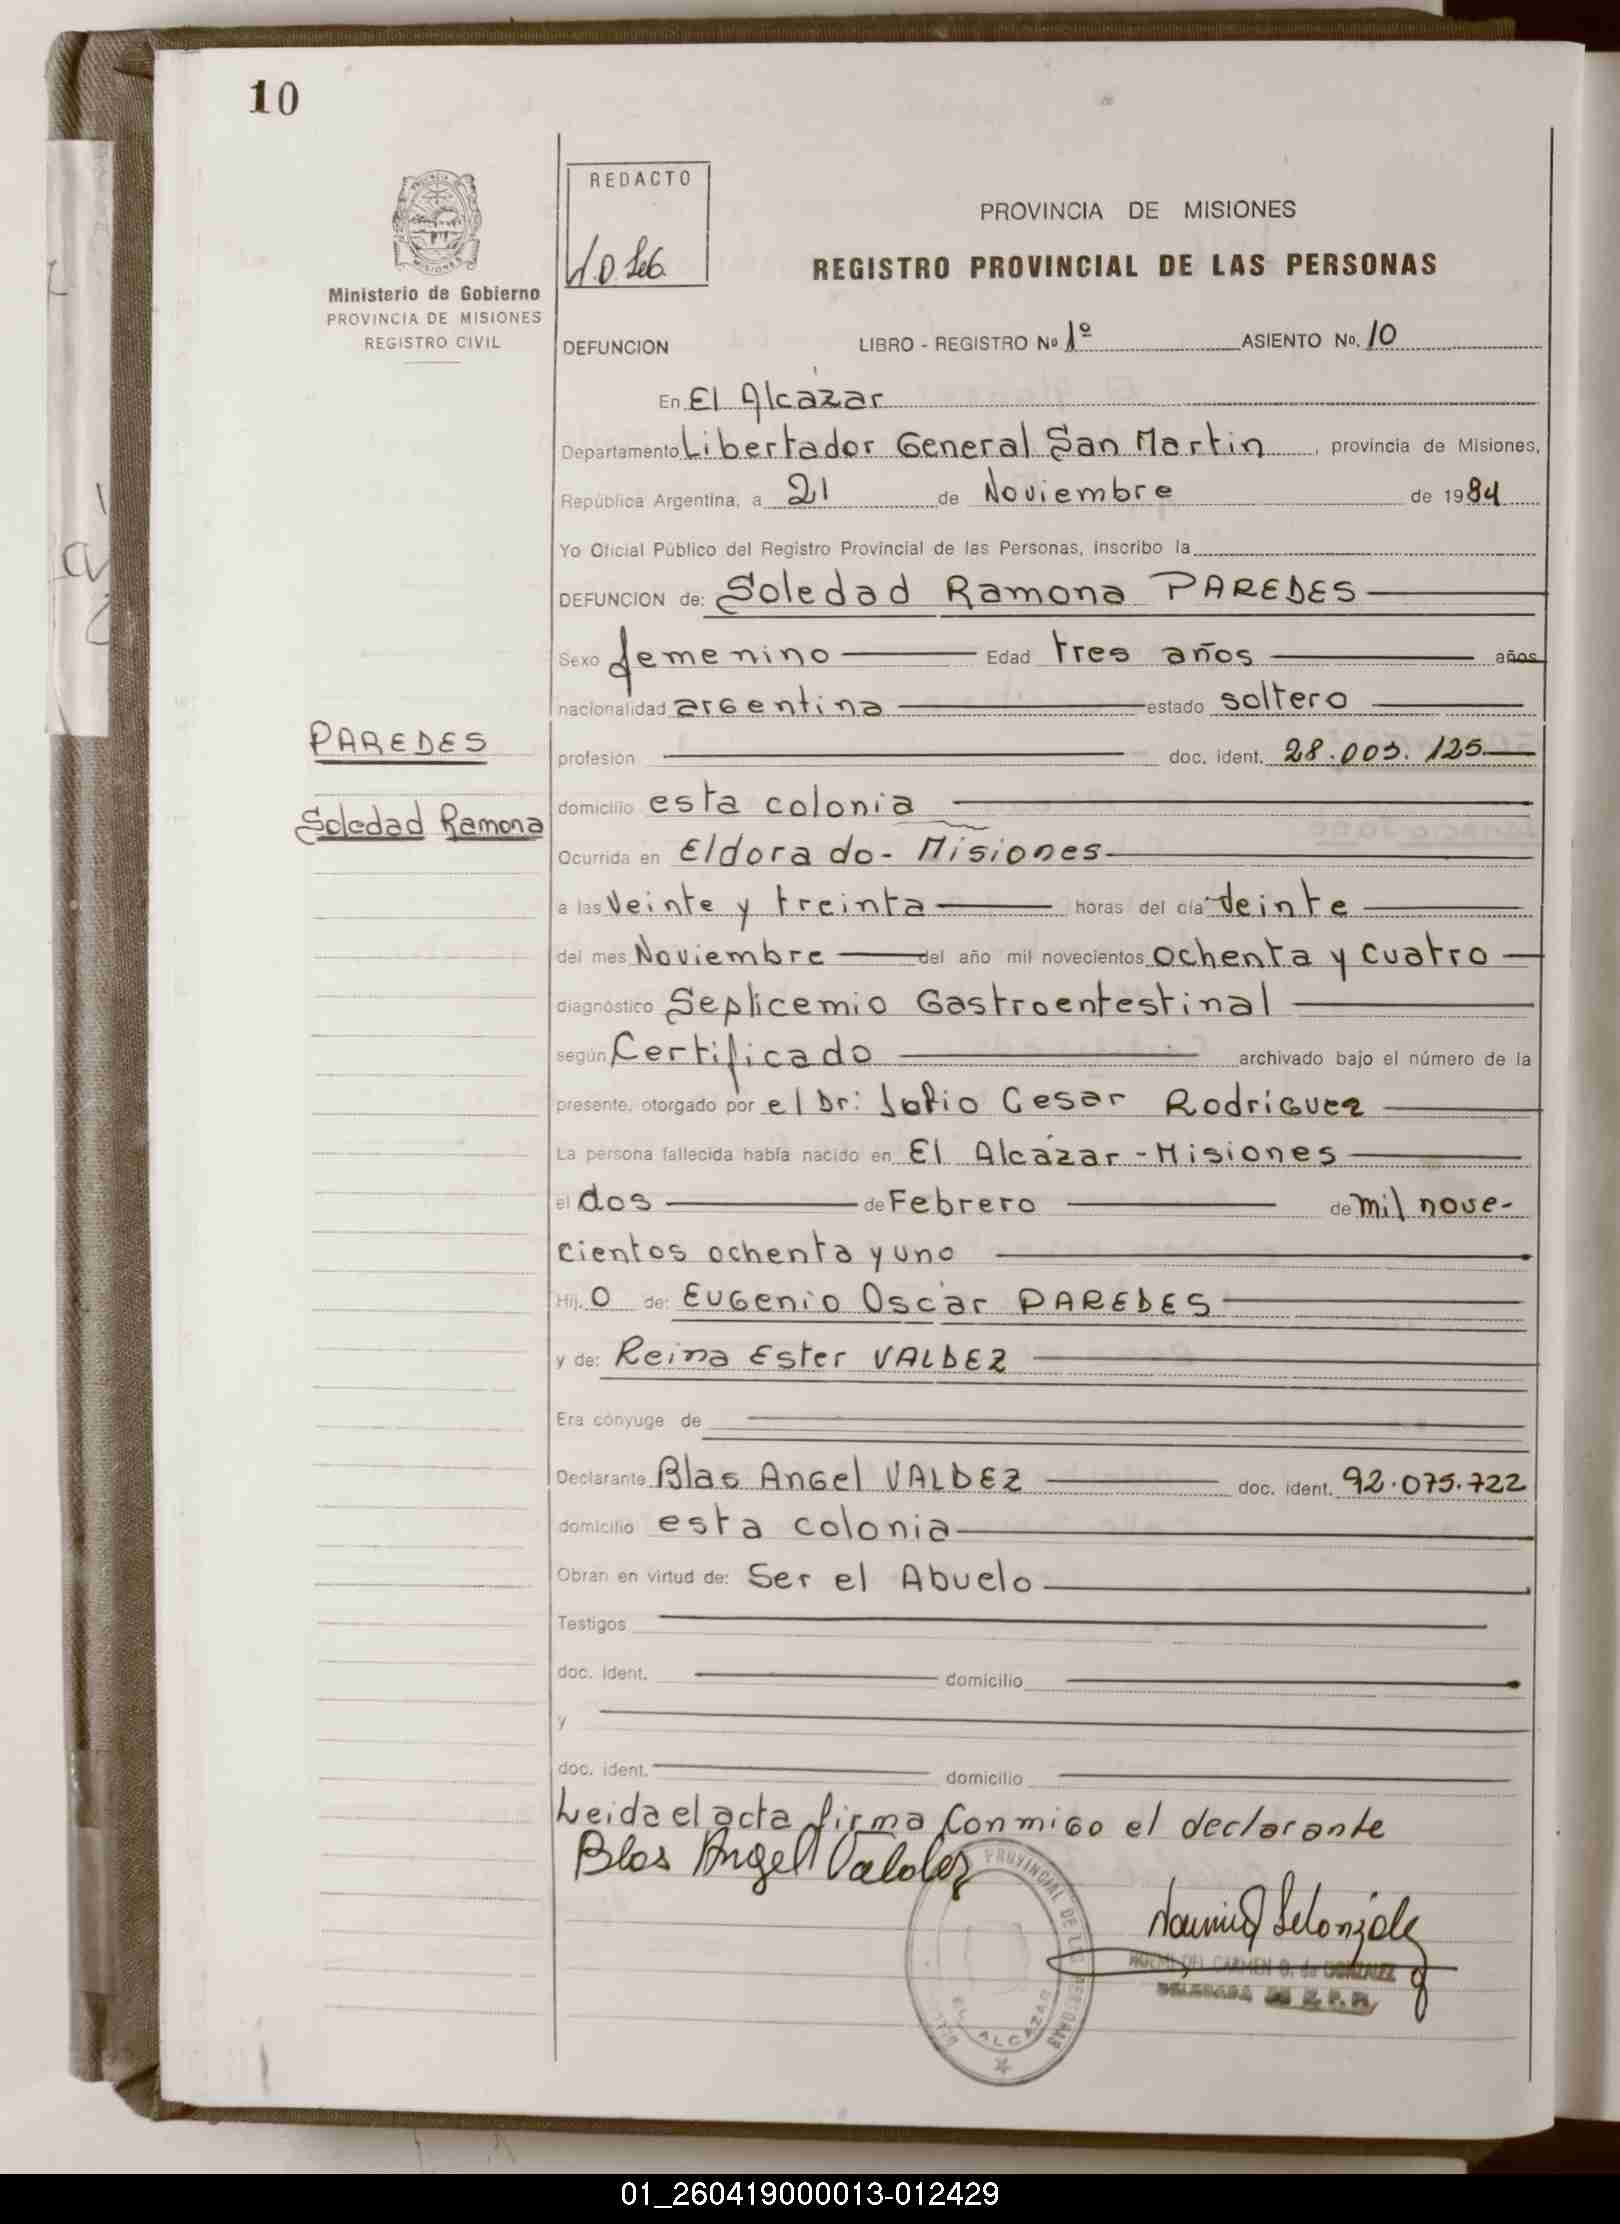 10
REDACTO
PROVINCIA DE MISIONES
REGISTRO PROVINCIAL DE LAS PERSONAS
Ministerio de Gobierno
PROVINCIA DE MISIONES
REGISTRO CIVIL
DEFUNCION LIBRO - REGISTRO Nº 1º ASIENTO No. 10
En El Alcázar
Departamento Libertador General San Martin, provincia de Misiones,
República Argentina, a 21 de Noviembre de 1984
Yo Oficial Público del Registro Provincial de las Personas, inscribo la
DEFUNCION de: Soledad Ramona PAREDES
Sexo femenino Edad tres años años
nacionalidad argentina estado soltero
PAREDES
profesión doc. ident. 28.003.125
Soledad Ramona
domicilio esta colonia
Ocurrida en Eldorado - Misiones
a las Veinte y treinta horas del día Veinte
del mes Noviembre del año mil novecientos ochenta y cuatro
diagnóstico Septicemio Gastroentestinal
según Certificado archivado bajo el número de la
presente, otorgado por el Dr: Cesar Rodríguez
La persona fallecida había nacido en El Alcázar - Misiones
el dos de Febrero de mil nove-
cientos ochenta y uno
Hij o de: Eugenio Oscar PAREDES
y de: Reina Ester VALDEZ
Era cónyuge de
Declarante Blas Angel VALDEZ doc. ident. 92.075.722
domicilio esta colonia
Obran en virtud de: Ser el Abuelo
Testigos
doc. ident. domicilio
y
doc. ident. domicilio
Leida el acta firma Conmigo el declarante
Blas Angel Valdez
PROVINCIAL DE LAS PERSONAS
EL ALCAZAR
DEL CARMEN G. de GONZALEZ
DELEGADA
01_260419000013-012429